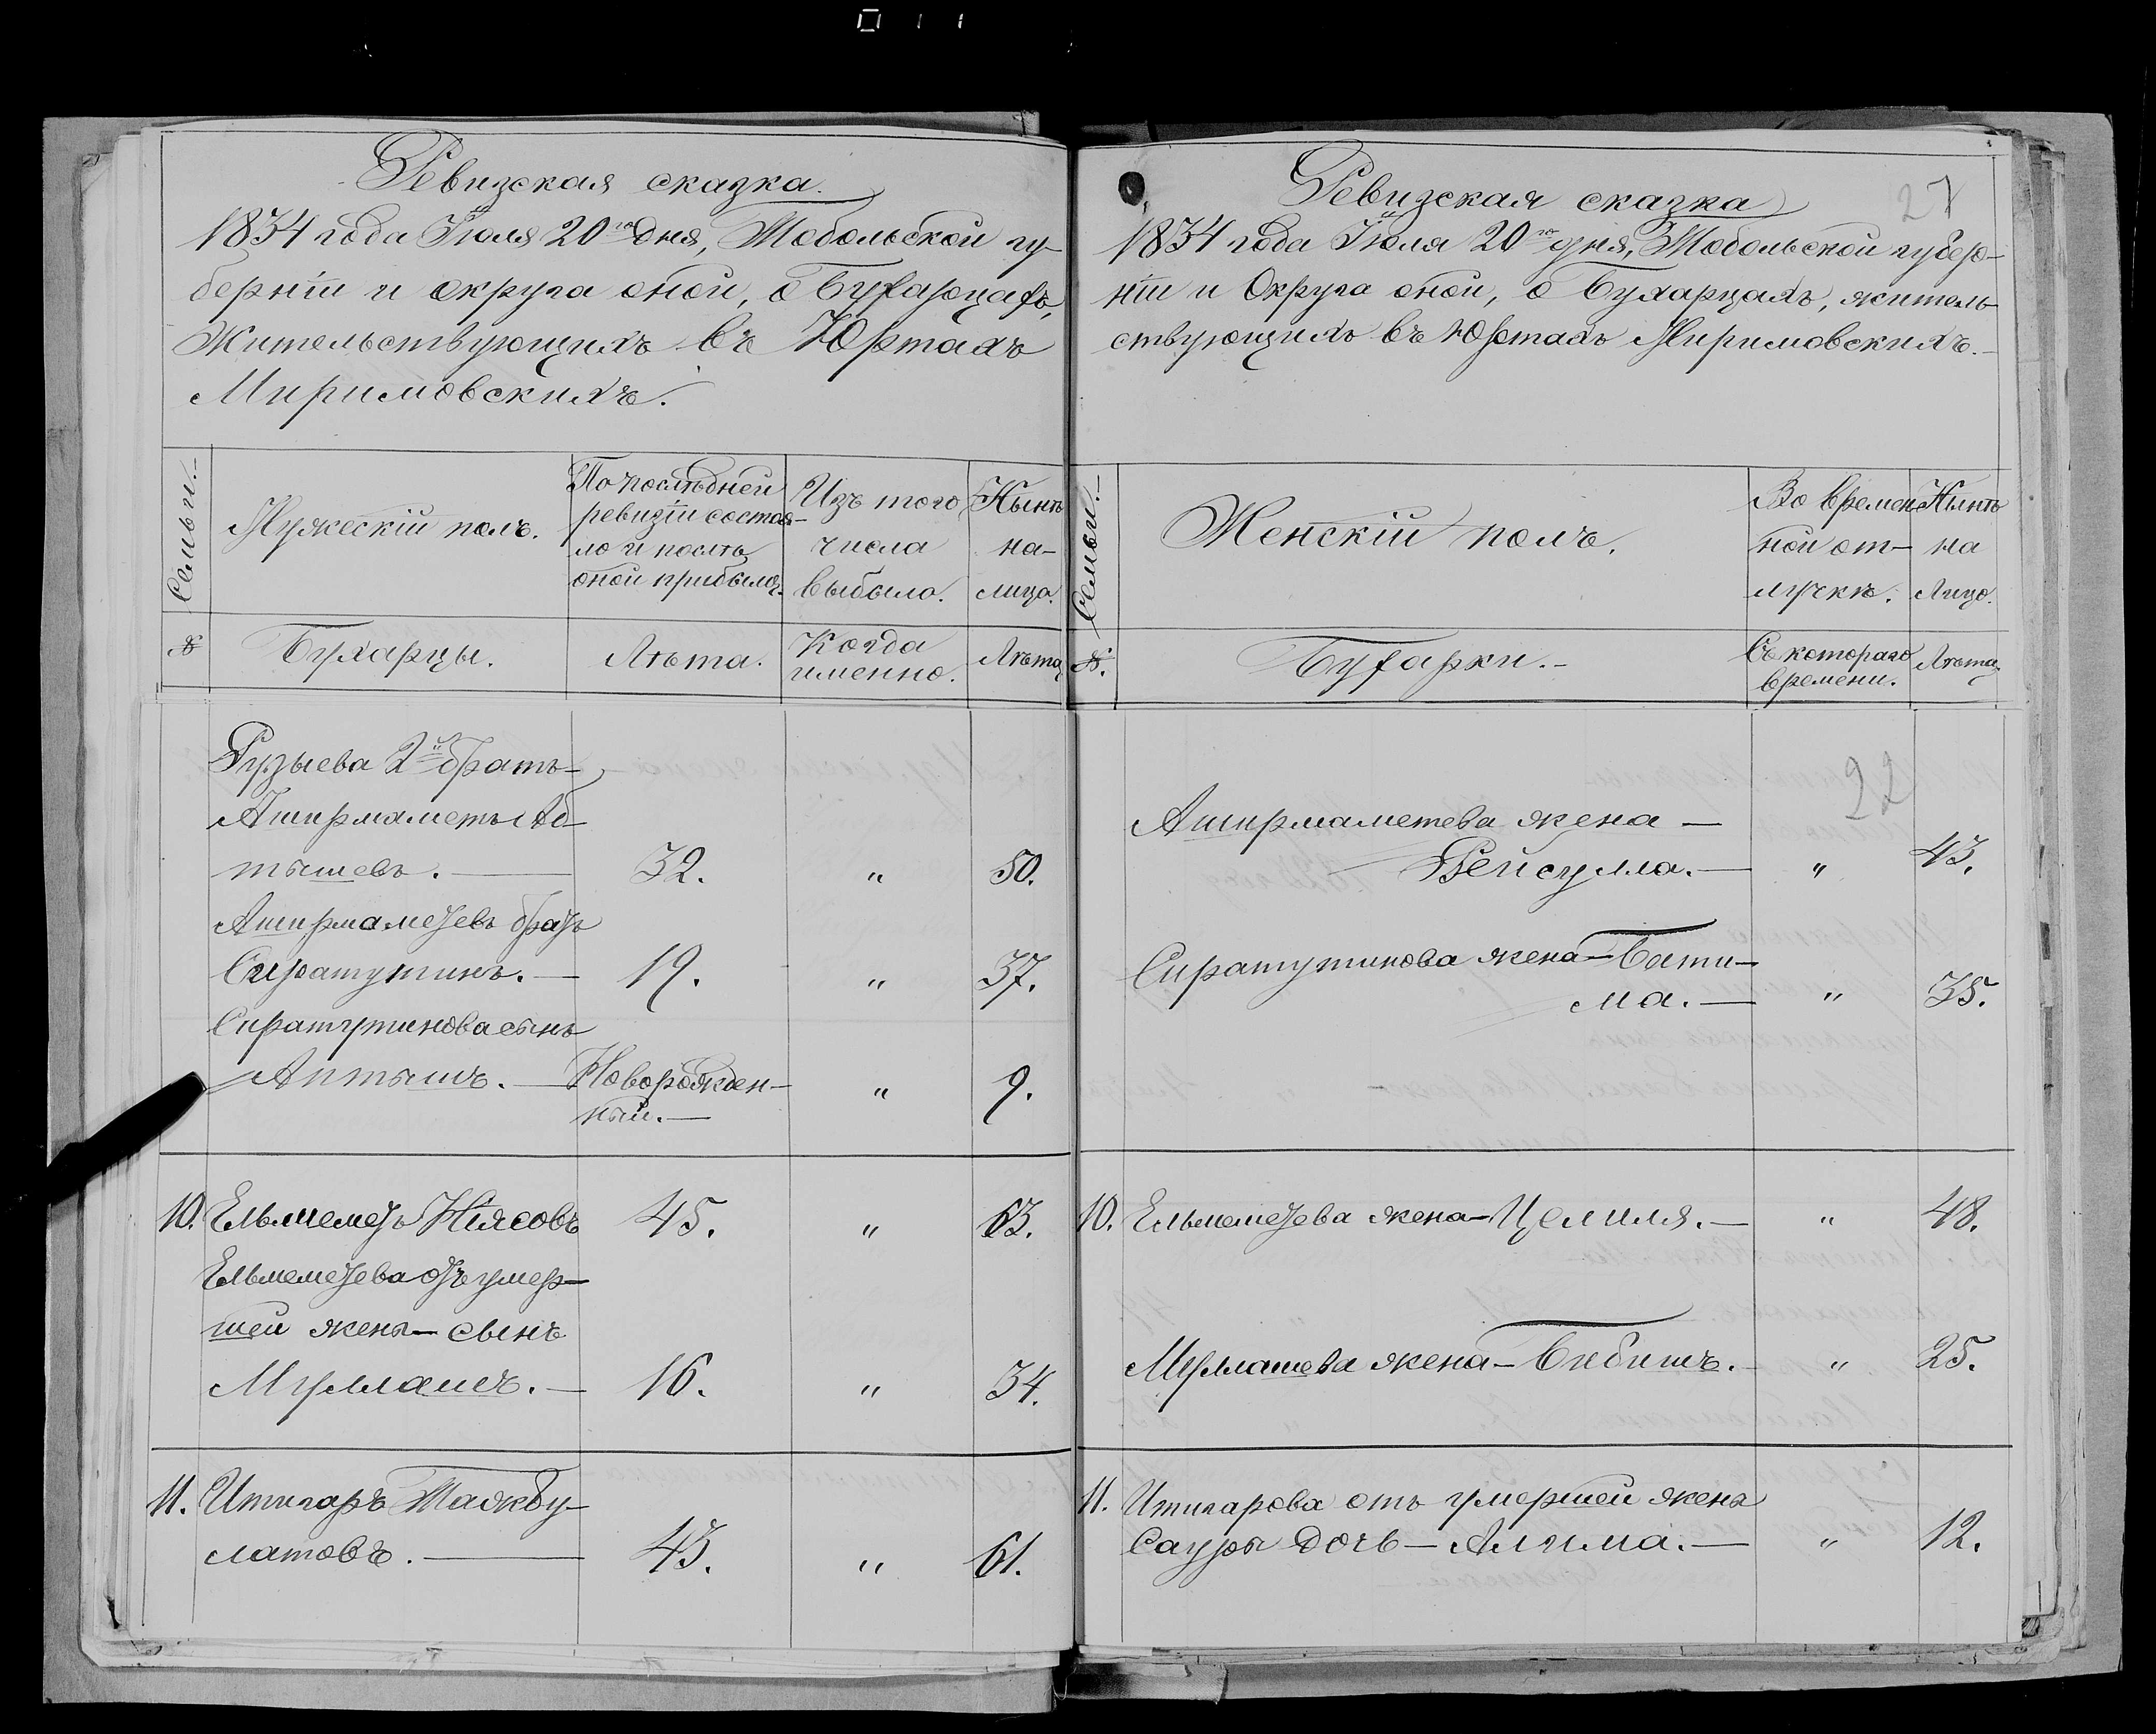 Ревизская сказка.
1834 года Іюля 20го дня, Тобольской гу-
берніи и округа оной, о Бухарцахъ,
Жительствующихъ въ Юртахъ
Миримовскихъ.
Семьи.
Мужескій полъ.
По послѣдней
ревизіи состоя-
ло и послѣ
оной прибыло.
Изъ того
числа
выбыло.
Нынѣ
на-
лицо.
№
Бухарцы.
Лѣта.
Когда
именно.
Лѣта
Рузыева 2й братъ
Аширмаметъ Аб-
тышевъ. — 32. " 50.
Аширмаметевъ братъ
Сиратутинъ. — 19. " 37.
Сиратутинова сынъ
Аптышъ. — Новорожден-
ный. — " 9.
10. Ельмеметъ Ніясовъ 45. " 63.
Ельмеметева отъ умер-
шей жены — сынъ
Муллашъ. — 16. " 34.
11. Итигаръ Таякбу-
латовъ. — 43. " 61.
Ревизская сказка
27
1834 года Іюля 20го дня, Тобольской губер-
ніи и Округа оной, о Бухарцахъ, житель-
ствующихъ въ Юртахъ Миримовскихъ.
Семьи.
Женскій полъ.
Во времен-
ной от-
лучкѣ.
Нынѣ
на
Лицо.
№.
Бухарки.
Съ котораго
времени.
Лѣта.
22
Аширмаметева жена —
Бейсулла. — " 43.
Сиратутинова жена — Бати-
ма. — " 35.
10. Ельмеметева жена — Целиля. — " 48.
Муллашева жена — Бибишъ. " 25.
11. Итигарова отъ умершей жены
Сауры дочь — Алима. — " 12.